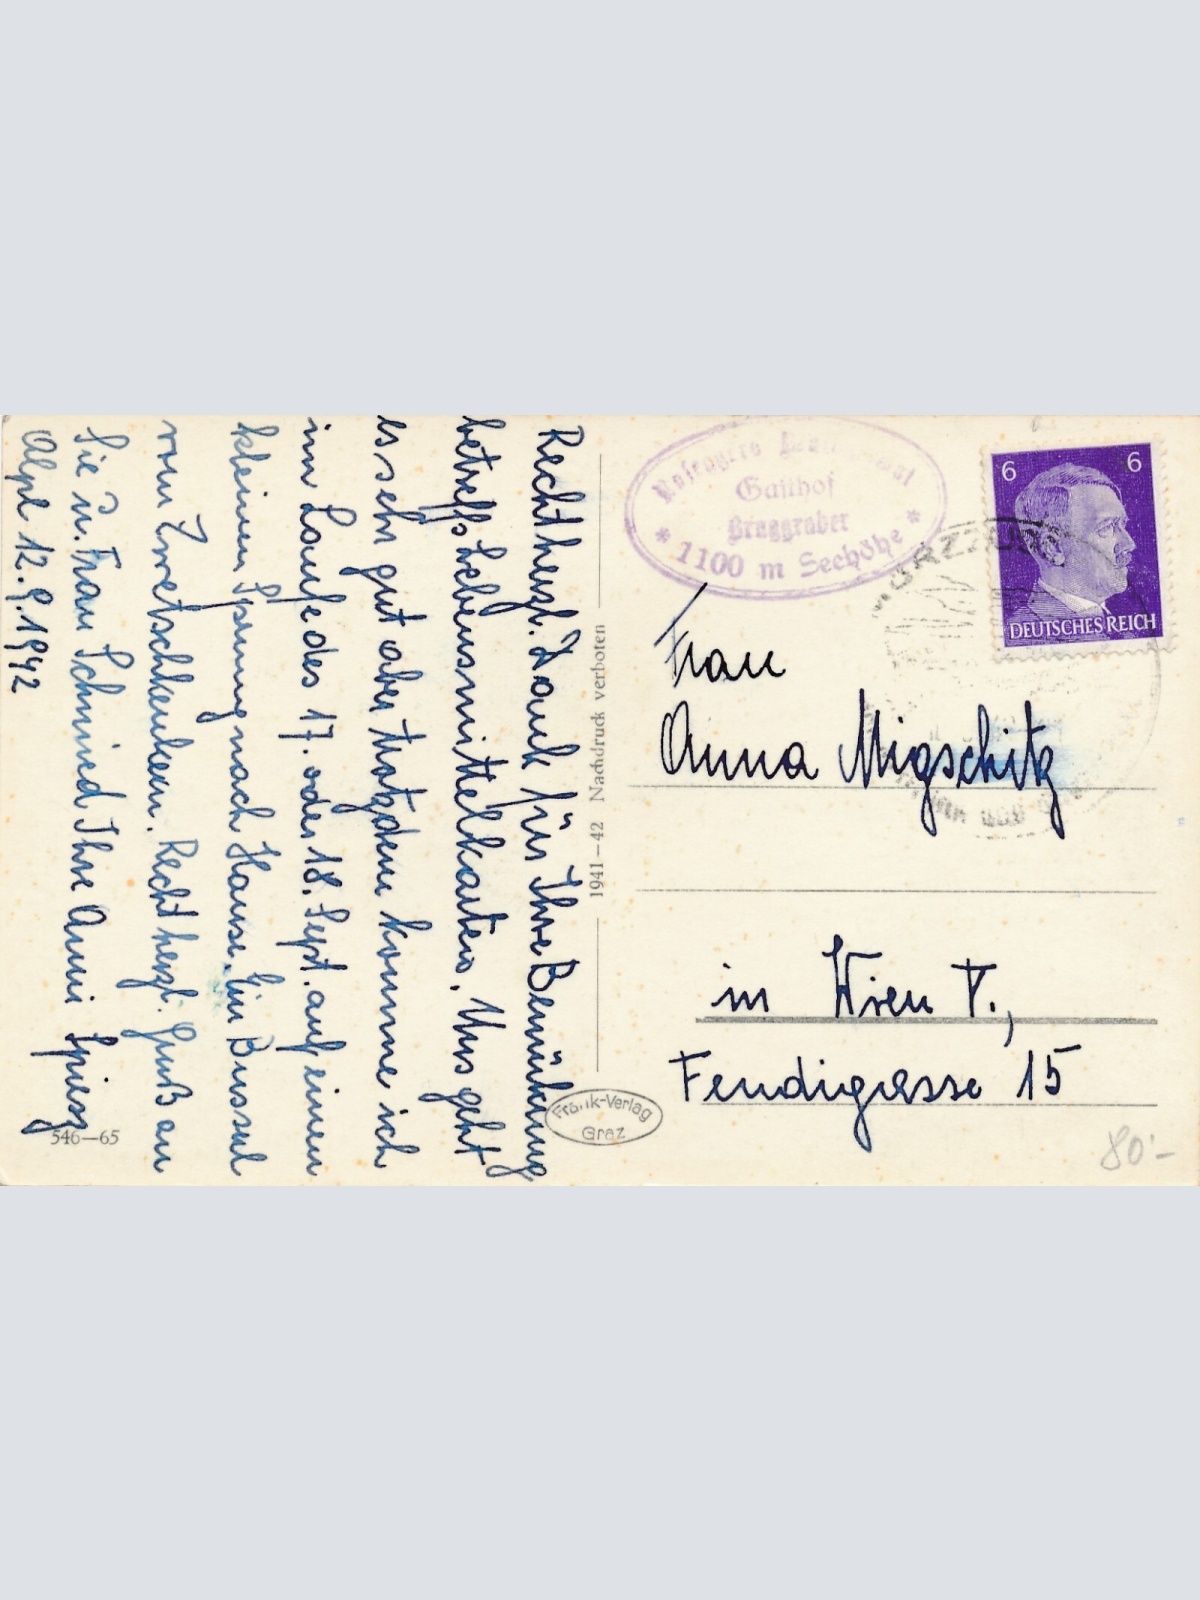 Recht herzl. Dank für Ihre Bemühung
betreffs Lebensmittelkarten. Uns geht
es sehr gut aber trotzdem komme ich
im Laufe des 17. oder 18. Sept. auf einen
kleinen Sprung nach Hause. Ein Bussel
vom Zwetschkenkern. Recht herzl. Gruß an
Sie u. Frau Schmied Ihre Anni Spiesz
Alpl 12.9.1942
546-65
1941-42 Nachdruck verboten
Frank-Verlag
Graz
Roseggers
Gasthof
Bruggraber
* 1100 m Seehöhe *
6 6
DEUTSCHES REICH
Frau
Anna Migschitz
in Wien V.,
Fendigasse 15
80.-